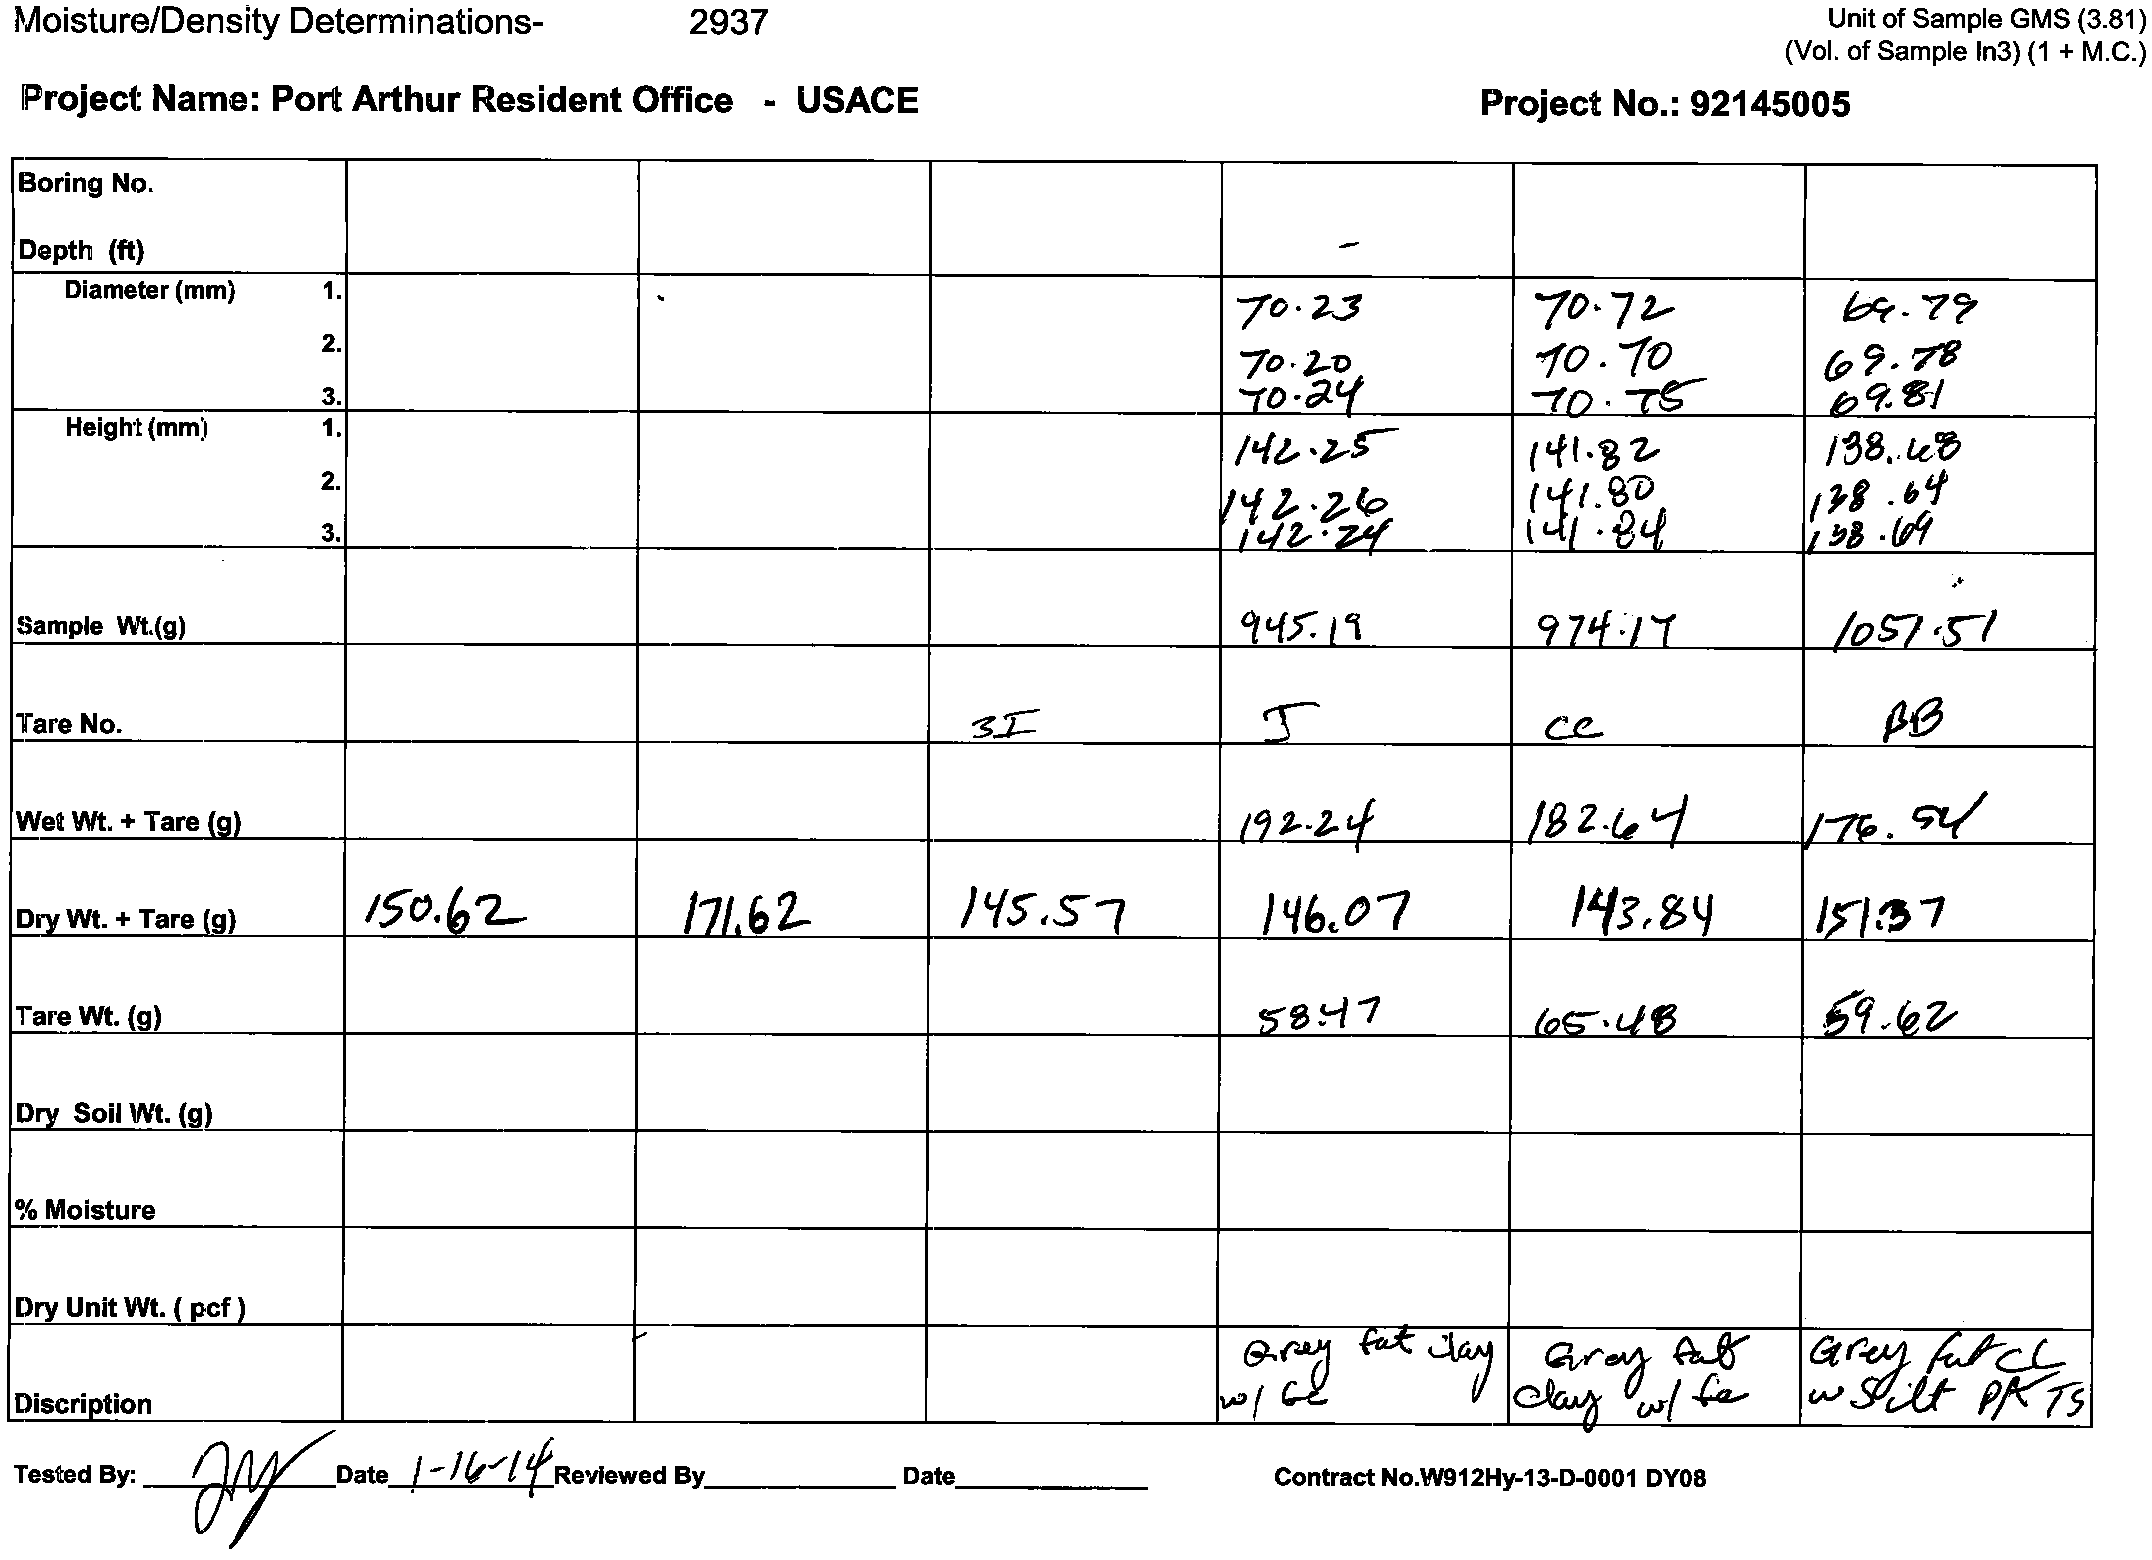 Moisture/Density Determinations- 2937 Unit of Sample GMS (3.81)
(Vol. of Sample In3) (1 + M.C.)
Project Name: Port Arthur Resident Office - USACE Project No.: 92145005
Boring No.
Depth (ft) -
Diameter (mm) 1. 70.23 70.72 69.79
2. 70.20 70.70 69.78
3. 70.24 70.75 69.81
Height (mm) 1. 142.25 141.82 138.68
2. 142.26 141.80 138.64
3. 142.24 141.84 138.69
Sample Wt.(g) 945.19 974.17 1057.51
Tare No. 3I J CC BB
Wet Wt. + Tare (g) 192.24 182.64 176.54
Dry Wt. + Tare (g) 150.62 171.62 145.57 146.07 143.84 151.37
Tare Wt. (g) 58.47 65.48 59.62
Dry Soil Wt. (g)
% Moisture
Dry Unit Wt. ( pcf )
Grey fat clay Gray fat Grey fat CL
Discription w/ clay w/ fe w Silt PK TS
Tested By: Date 1-16-14 Reviewed By Date Contract No.W912Hy-13-D-0001 DY08